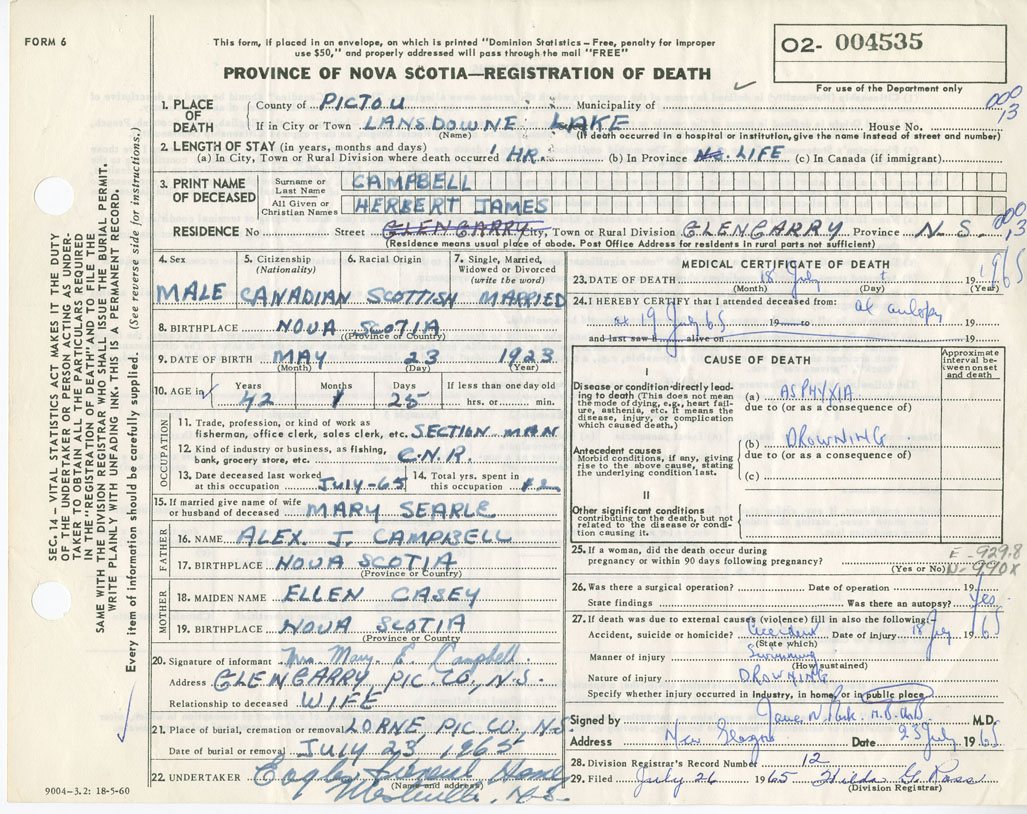 FORM 6
This form, if placed in an envelope, on which is printed "Dominion Statistics – Free, penalty for improper
use $50," and properly addressed will pass through the mail "FREE"
O2- 004535
PROVINCE OF NOVA SCOTIA—REGISTRATION OF DEATH
For use of the Department only
000
13
1. PLACE OF DEATH
County of PICTOU Municipality of
If in City or Town LANSDOWNE LAKE House No.
(Name) (If death occurred in a hospital or institution, give the name instead of street and number)
2. LENGTH OF STAY (in years, months and days)
(a) In City, Town or Rural Division where death occurred 1 HR. (b) In Province LIFE (c) In Canada (if immigrant)
3. PRINT NAME OF DECEASED
Surname or Last Name CAMPBELL
All Given or Christian Names HERBERT JAMES
000
13
RESIDENCE No Street GLENGARRY City, Town or Rural Division GLENGARRY Province N. S.
(Residence means usual place of abode. Post Office Address for residents in rural parts not sufficient)
4. Sex
MALE
5. Citizenship
(Nationality)
CANADIAN
6. Racial Origin
SCOTTISH
7. Single, Married,
Widowed or Divorced
(write the word)
MARRIED
8. BIRTHPLACE NOVA SCOTIA
(Province or Country)
9. DATE OF BIRTH MAY 23 1923
(Month) (Day) (Year)
10. AGE in
Years Months Days If less than one day old
42 1 25 hrs. or min.
OCCUPATION
11. Trade, profession, or kind of work as
fisherman, office clerk, sales clerk, etc. SECTION MAN
12. Kind of industry or business, as fishing,
bank, grocery store, etc. C.N.R.
13. Date deceased last worked
at this occupation JULY-65
14. Total yrs. spent in
this occupation 12
15. If married give name of wife
or husband of deceased MARY SEARLE
FATHER
16. NAME ALEX. J. CAMPBELL
17. BIRTHPLACE NOVA SCOTIA
(Province or Country)
MOTHER
18. MAIDEN NAME ELLEN CASEY
19. BIRTHPLACE NOVA SCOTIA
(Province or Country)
20. Signature of informant Mrs. Mary E. Campbell
Address GLENGARRY PIC. CO., N.S.
Relationship to deceased WIFE
21. Place of burial, cremation or removal LORNE PIC CO. N.S.
Date of burial or removal JULY 23 1965
22. UNDERTAKER Eagles Funeral Home
(Name and address)
Westville, N.S.
9004-3.2: 18-5-60
MEDICAL CERTIFICATE OF DEATH
23. DATE OF DEATH 18 July 1965
(Month) (Day) (Year)
24. I HEREBY CERTIFY that I attended deceased from: at autopsy
19 July 65 19 to 19
and last saw h alive on 19
CAUSE OF DEATH
Approximate
interval be-
tween onset
and death
I
Disease or condition directly lead-
ing to death (This does not mean
the mode of dying, e.g., heart fail-
ure, asthenia, etc. It means the
disease, injury, or complication
which caused death.)
(a) ASPHYXIA
due to (or as a consequence of)
(b) DROWNING
due to (or as a consequence of)
Antecedent causes
Morbid conditions, if any, giving
rise to the above cause, stating
the underlying condition last.
(c)
II
Other significant conditions
contributing to the death, but not
related to the disease or condi-
tion causing it.
25. If a woman, did the death occur during
pregnancy or within 90 days following pregnancy?
(Yes or No)
E - 929.8
N - 990X
26. Was there a surgical operation? Date of operation 19
State findings Was there an autopsy? Yes.
27. If death was due to external causes (violence) fill in also the following:–
Accident, suicide or homicide? Accident Date of injury 18 July 1965
(State which)
Manner of injury Swimming
(How sustained)
Nature of injury DROWNING
Specify whether injury occurred in industry, in home or in public place
Signed by M.D.
Address New Glasgow Date 23 July 1965
28. Division Registrar's Record Number 12
29. Filed July 26 1965 Hilda G. Ross
(Division Registrar)
SEC. 14 – VITAL STATISTICS ACT MAKES IT THE DUTY
OF THE UNDERTAKER OR PERSON ACTING AS UNDER-
TAKER TO OBTAIN ALL THE PARTICULARS REQUIRED
IN THE "REGISTRATION OF DEATH" AND TO FILE THE
SAME WITH THE DIVISION REGISTRAR WHO SHALL ISSUE THE BURIAL PERMIT.
WRITE PLAINLY WITH UNFADING INK. THIS IS A PERMANENT RECORD.
Every item of information should be carefully supplied. (See reverse side for instructions.)